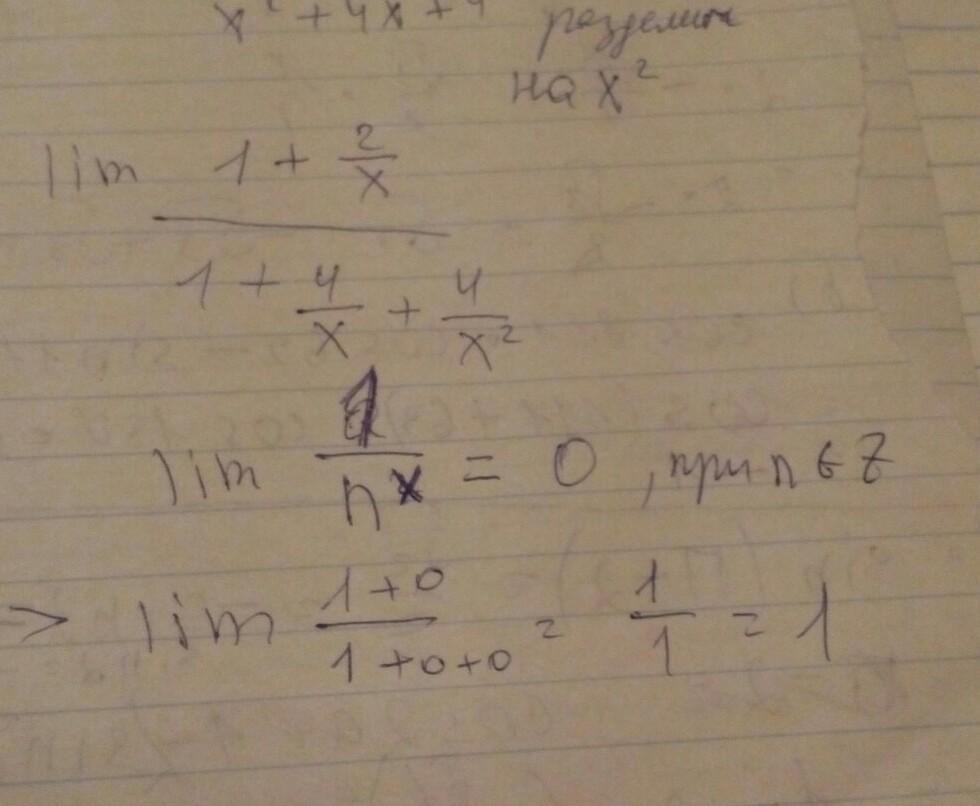 x² + 4x + 4 разделим
на x²
lim (1 + 2/x)/(1 + 4/x + 4/x²)
lim 1/n^x = 0, при n ∈ Z
=> lim (1+0)/(1+0+0) = 1/1 = 1